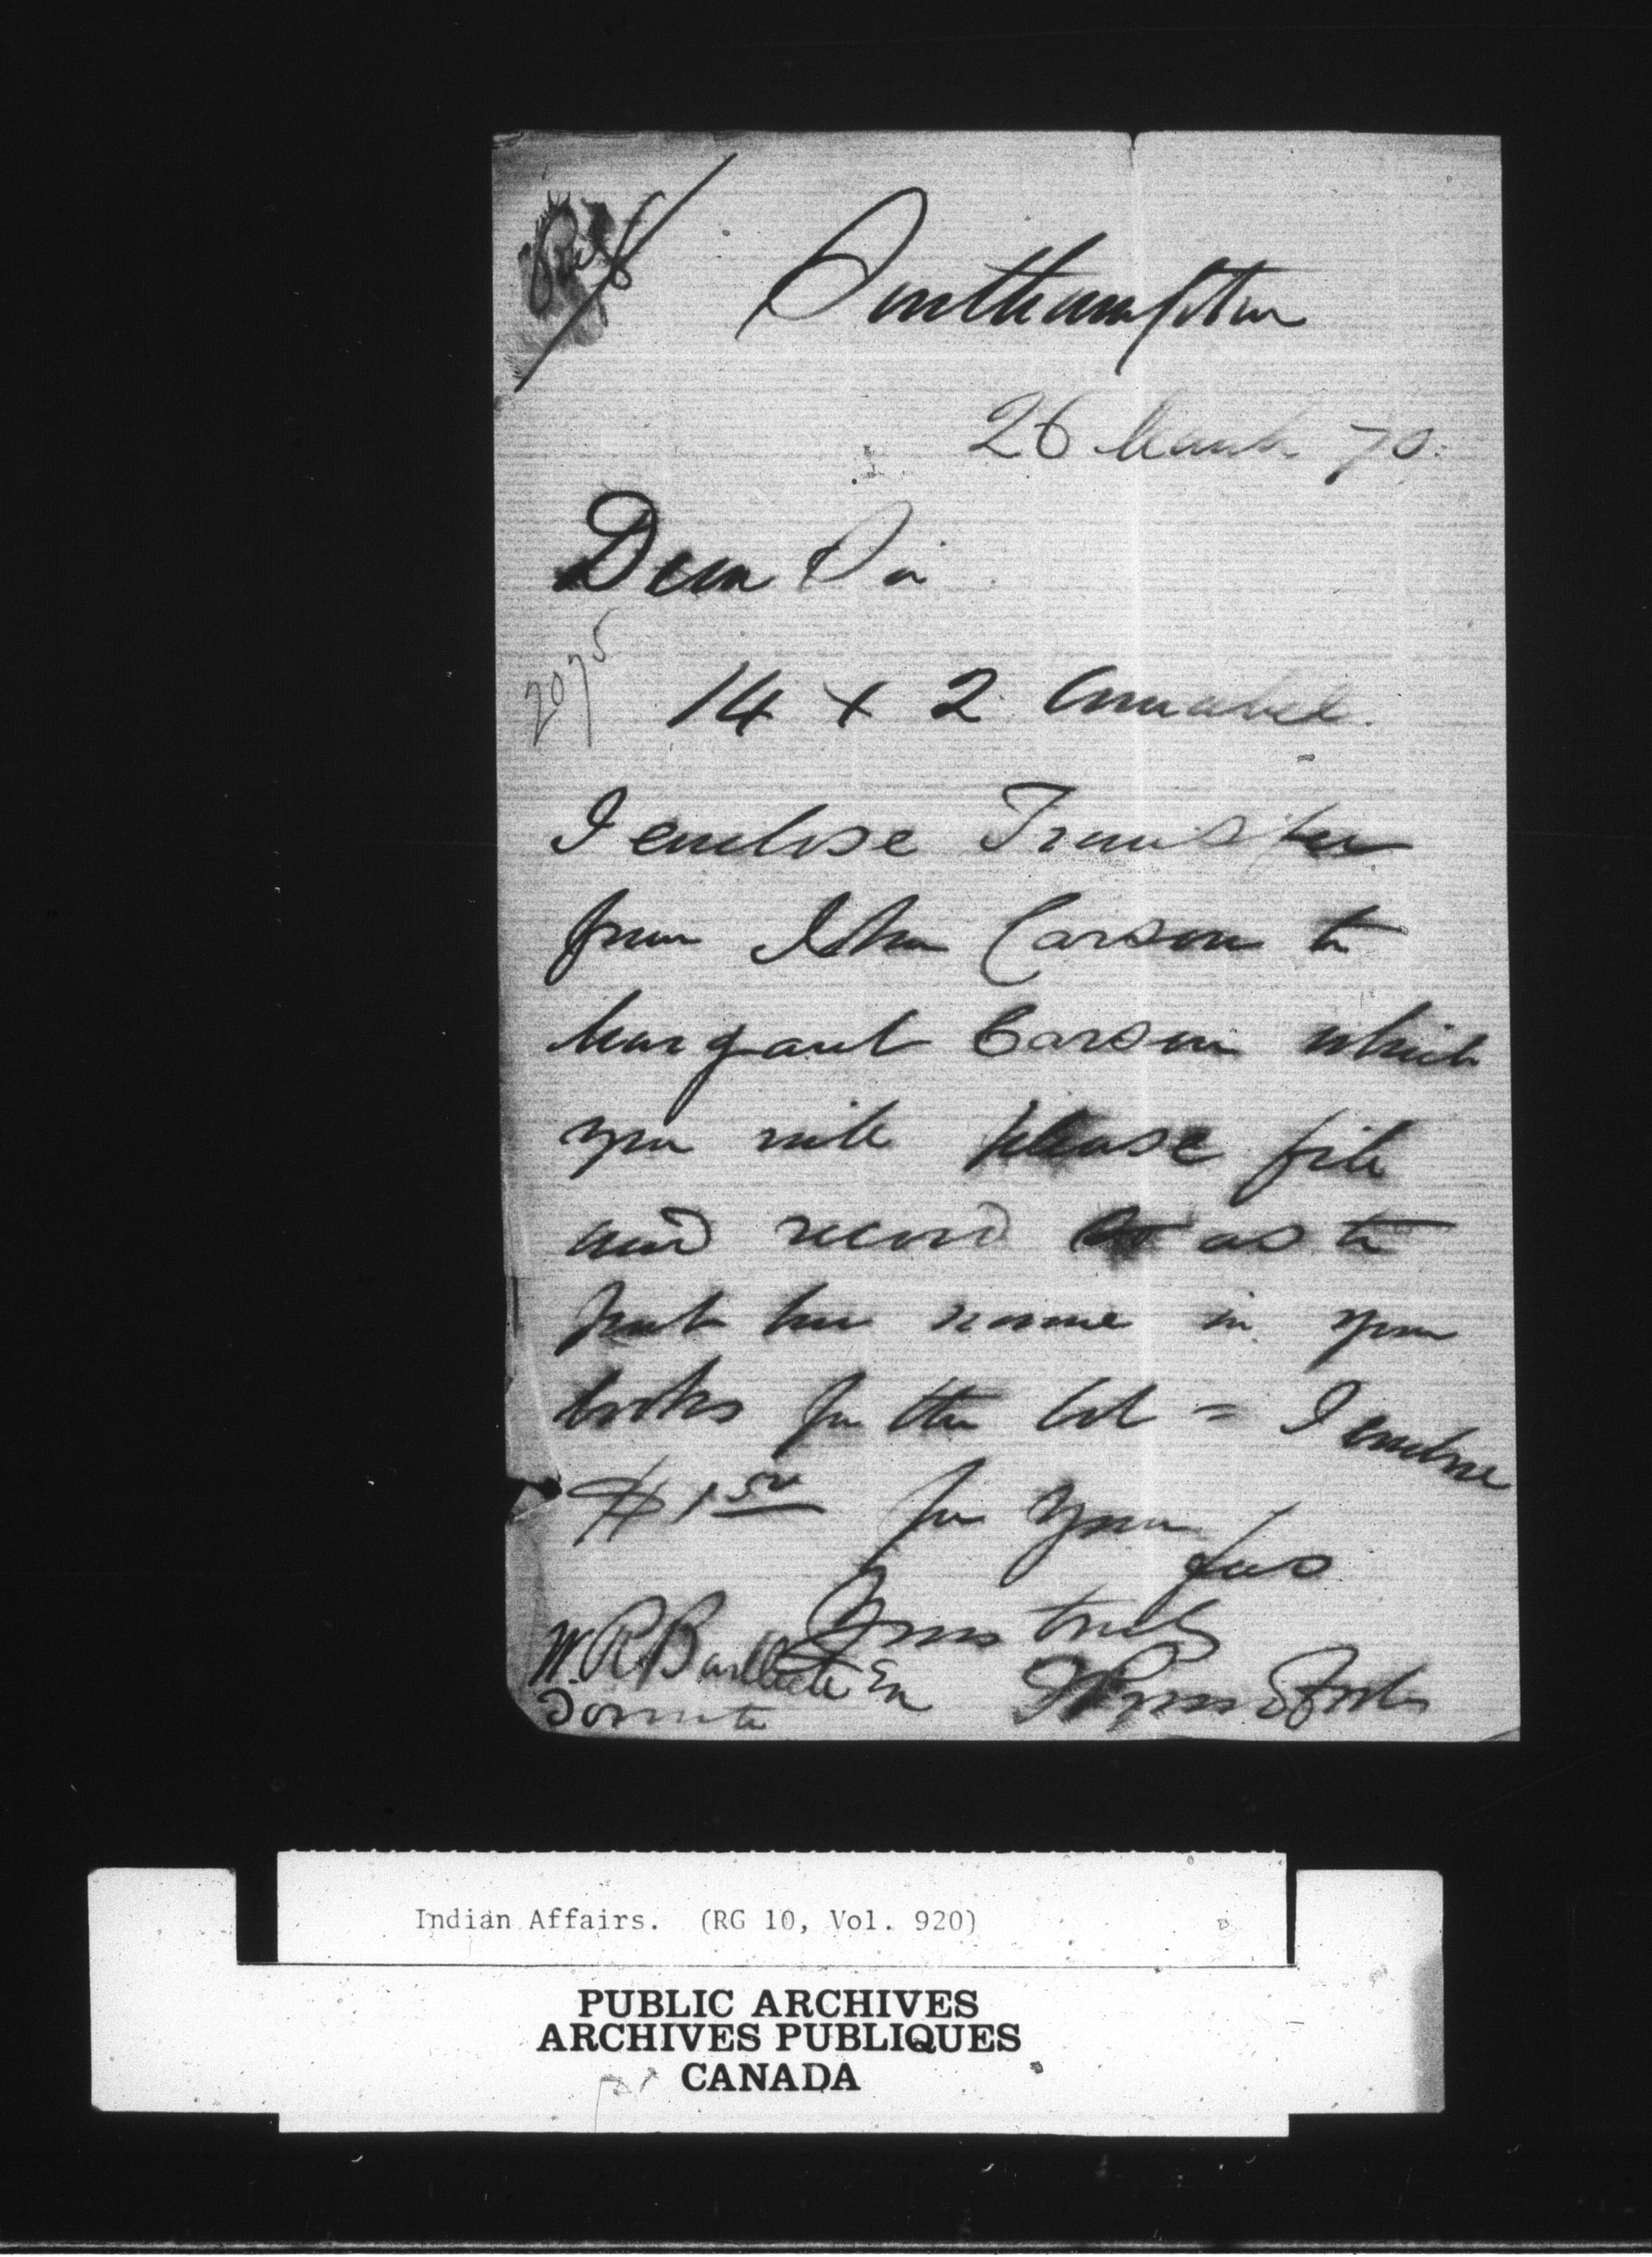 Southampton
26 March 70.
Dear Sir
2075
14 + 2 Amabel.
I enclose Transfer
from John Carson to
Margaret Carson which
you will please file
and record so as to
put her name in your
books for the lot = I enclose
$1 50 for your
fees
Yours truly
W. R. Bartlett Esq
Toronto
Indian Affairs. (RG 10, Vol. 920)
PUBLIC ARCHIVES
ARCHIVES PUBLIQUES
CANADA